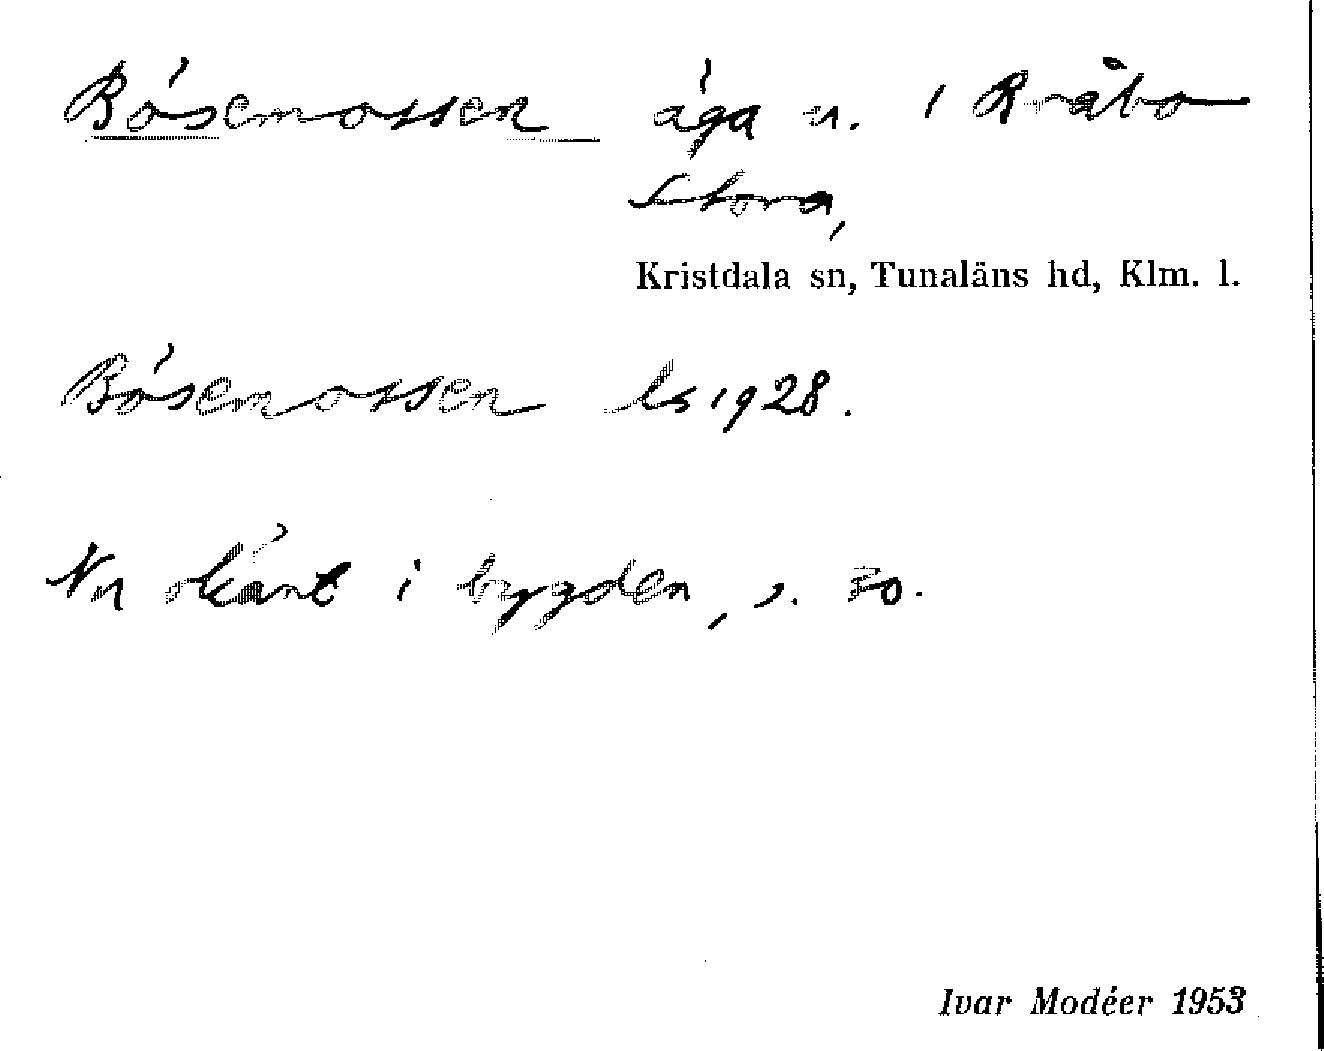 Bösemossen äga n. i Bråbo
Stora,
Kristdala sn, Tunaläns hd, Klm. l.
Bösemossen ls 1928.
Nu okänt i bygden, s. 50.
Ivar Modéer 1953